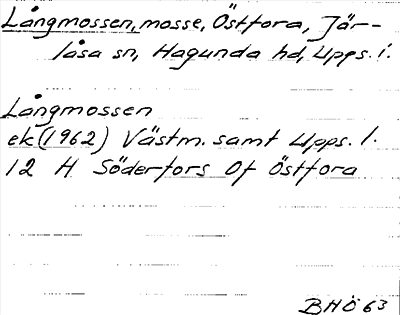 Långmossen, mosse, Östfora, Jär-
låsa sn, Hagunda hd, Upps. l.
Långmossen
ek (1962) Västm. samt Upps. l.
12 H Söderfors 0f Östfora
BHÖ 63